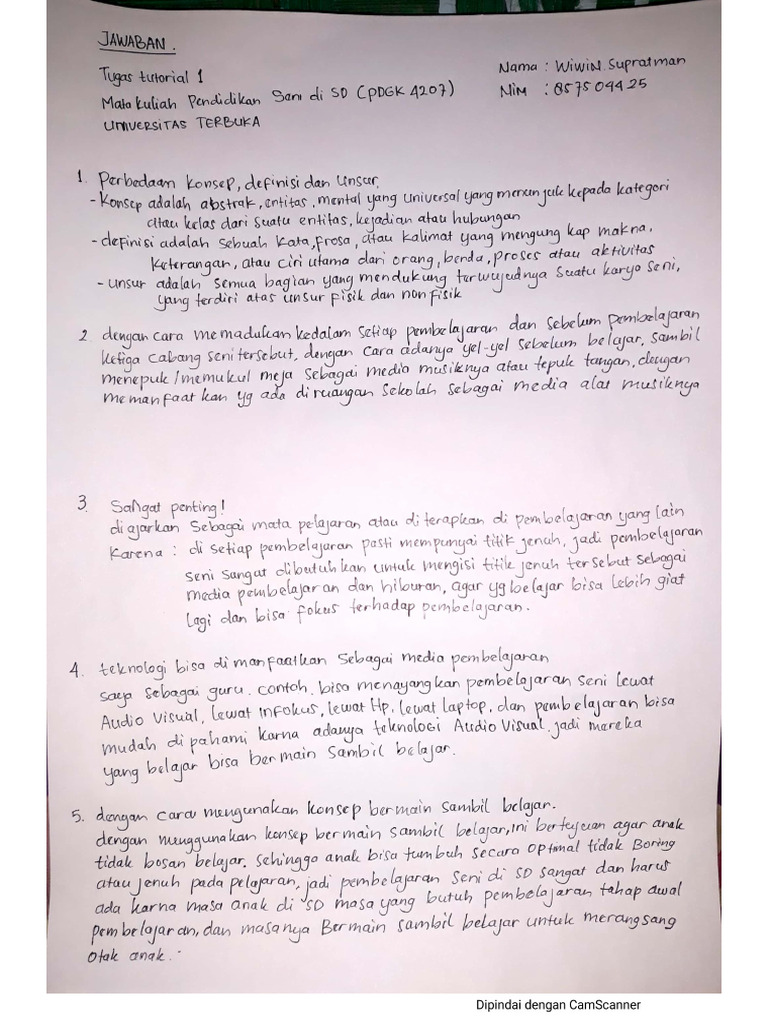 JAWABAN.
Tugas tutorial 1
Nama : Wiwin Supratman
Mata kuliah Pendidikan Seni di SD (PDGK 4207)
Nim : 857509425
UNIVERSITAS TERBUKA
1. Perbedaan Konsep, definisi dan Unsur.
- Konsep adalah abstrak, entitas, mental yang universal yang menunjuk kepada kategori
atau kelas dari suatu entitas, kejadian atau hubungan
- definisi adalah sebuah kata, frosa, atau kalimat yang mengung kap makna,
keterangan, atau ciri utama dari orang, benda, proses atau aktivitas
- unsur adalah semua bagian yang mendukung terwujudnya suatu karya seni,
yang terdiri atas unsur fisik dan non fisik
2. dengan cara memadukan kedalam setiap pembelajaran dan sebelum pembelajaran
ketiga cabang seni tersebut, dengan cara adanya yel-yel sebelum belajar, sambil
menepuk/memukul meja sebagai media musiknya atau tepuk tangan, dengan
memanfaatkan yg ada diruangan sekolah sebagai media alat musiknya
3. Sangat penting!
diajarkan sebagai mata pelajaran atau diterapkan di pembelajaran yang lain
Karena : di setiap pembelajaran pasti mempunyai titik jenuh, jadi pembelajaran
seni sangat dibutuhkan untuk mengisi titik jenuh tersebut sebagai
media pembelajaran dan hiburan, agar yg belajar bisa lebih giat
lagi dan bisa fokus terhadap pembelajaran.
4. teknologi bisa dimanfaatkan sebagai media pembelajaran
saya sebagai guru. contoh. bisa menayangkan pembelajaran seni lewat
Audio Visual, lewat infokus, lewat Hp, lewat laptop, dan pembelajaran bisa
mudah di pahami karna adanya teknologi Audio Visual. jadi mereka
yang belajar bisa bermain sambil belajar.
5. dengan cara mengunakan konsep bermain sambil belajar.
dengan menggunakan konsep bermain sambil belajar, ini bertujuan agar anak
tidak bosan belajar. sehinggo anak bisa tumbuh secara optimal tidak Boring
atau jenuh pada pelajaran, jadi pembelajaran seni di SD sangat dan harus
ada karna masa anak di SD masa yang butuh pembelajaran tahap awal
pembelajaran, dan masanya Bermain sambil belajar untuk merangsang
otak anak.
Dipindai dengan CamScanner